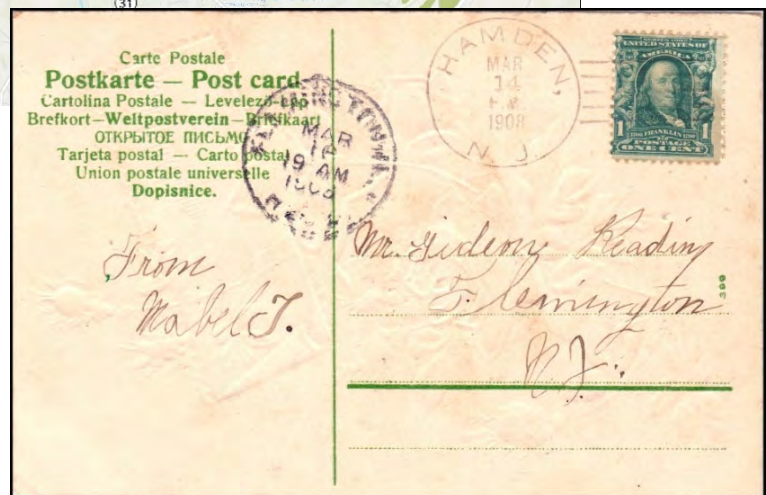 (31)
Carte Postale
Postkarte — Post card
Cartolina Postale — Levelező-Lap
Brefkort—Weltpostverein—Briefkaart
ОТКРЫТОЕ ПИСЬМО
Tarjeta postal — Carto postal
Union postale universelle
Dopisnice.
MAR
AM
HAMDEN,
MAR
14
P.M.
1908
N. J.
UNITED STATES OF
1 FRANKLIN 1
POSTAGE
ONE CENT
From
Mabel T.
Mr. Gideon Reading
Flemington
N.J.
369